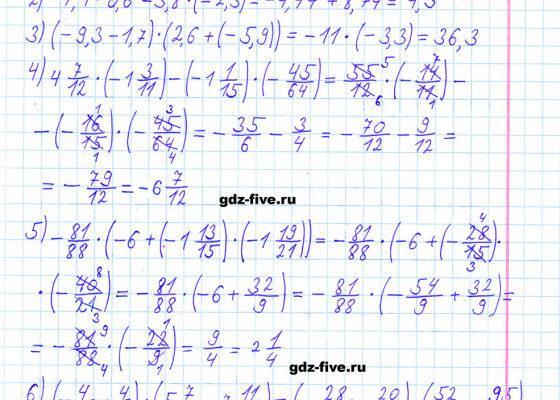 3) (-9,3-1,7)·(2,6+(-5,9))=-11·(-3,3)=36,3
4) 4 7/12·(-1 3/11)-(-1 1/15)·(-45/64)=55/12·(-14/11)-
-(-16/15)·(-45/64)=-35/6-3/4=-70/12-9/12=
=-79/12=-6 7/12
gdz-five.ru
5) -81/88·(-6+(-1 13/15)·(-1 19/21))=-81/88·(-6+(-28/15)·
·(-40/21)=-81/88·(-6+32/9)=-81/88·(-54/9+32/9)=
=-81/88·(-22/9)=9/4=2 1/4
gdz-five.ru